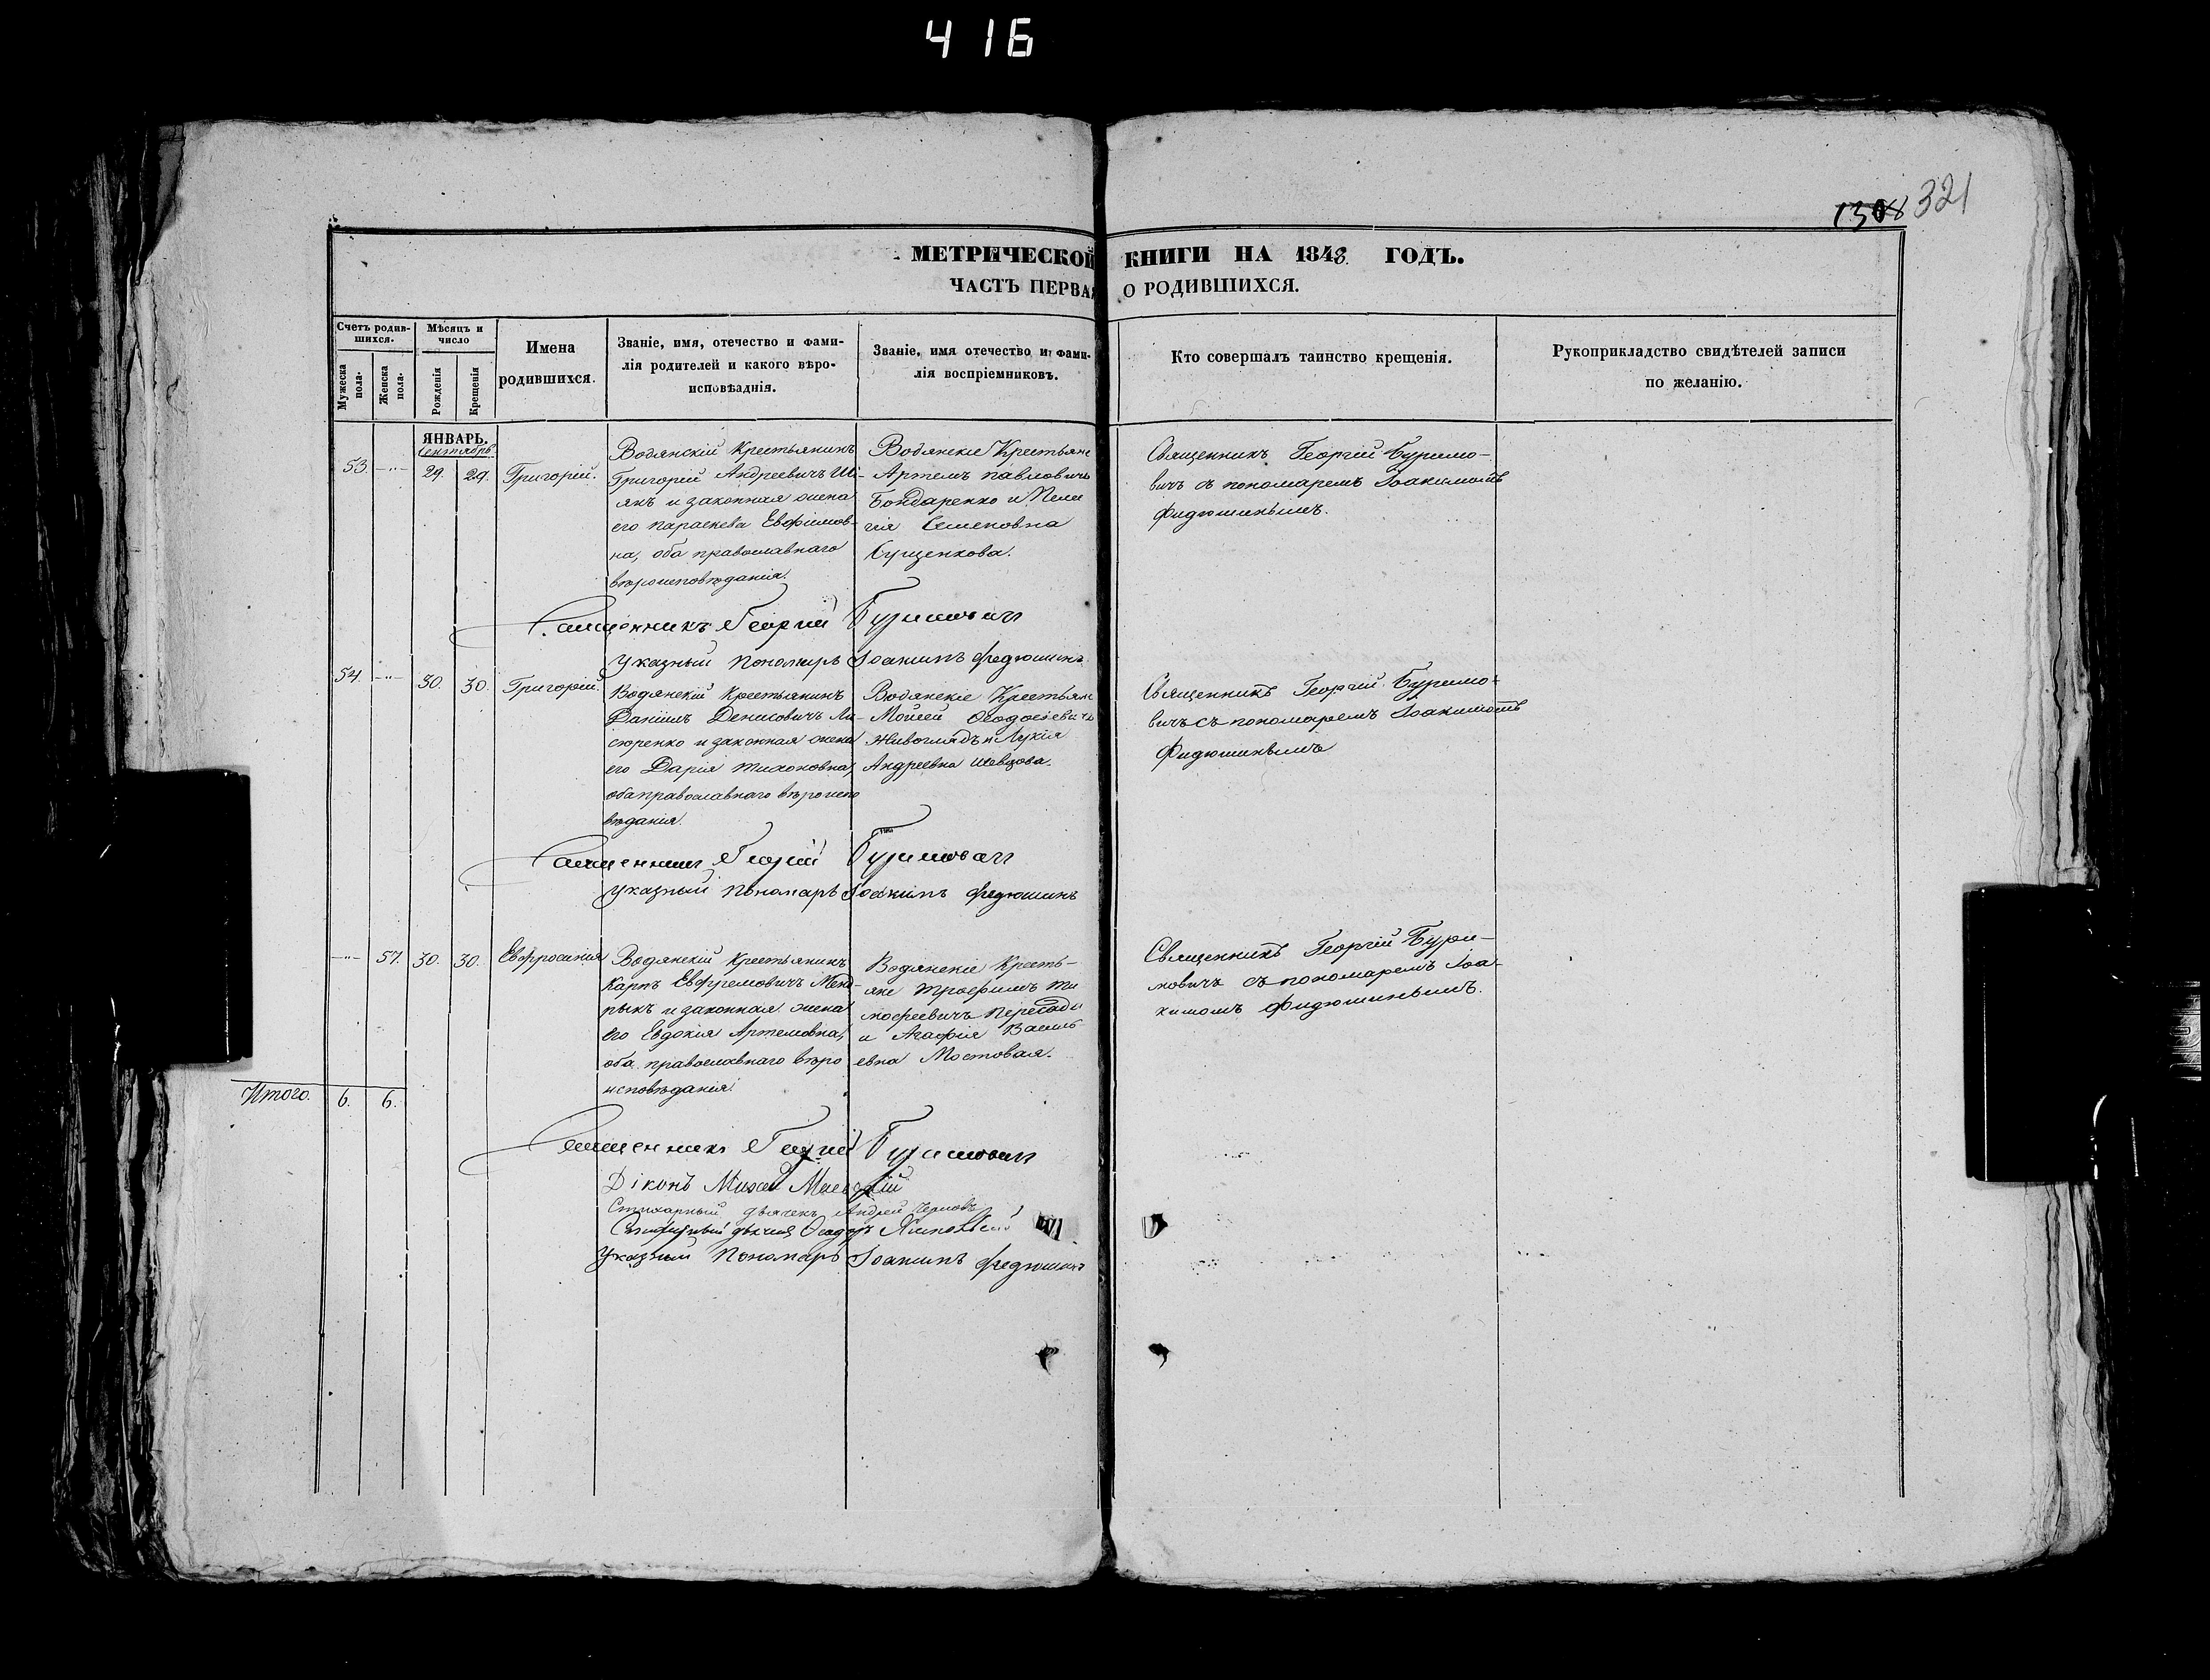 416
1308 321
МЕТРИЧЕСКОЙ КНИГИ НА 1848 ГОДЪ.
ЧАСТЬ ПЕРВАЯ О РОДИВШИХСЯ.
Счетъ родив-
шихся.
Мужеска
пола.
Женска
пола.
Мѣсяцъ и
число
Рожденія
Крещенія
Имена
родившихся.
Званіе, имя, отечество и фами-
лія родителей и какого вѣро-
исповѣднія.
Званіе, имя отечество и фами-
лія воспріемниковъ.
Кто совершалъ таинство крещенія.
Рукоприкладство свидѣтелей записи
по желанію.
ЯНВАРЬ.
Сентябрь
53. -"- 29. 29. Григорій.
Водянскій Крестьянинъ
Григорій Андреевичъ Ши-
якъ и законная жена
его Параскева Евфимов-
на, оба православнаго
вѣроисповѣданія.
Водянскіе Крестьяне
Артемъ Павловичъ
Бондаренко и Пела
гія Семеновна
Сущенкова.
Священникъ Георгій Буримо-
вичъ съ пономаремъ Іоакимомъ
Фидюшинымъ.
Священникъ Георгій Буримович
Указный Пономарь Іоакимъ Федюшинъ
54. -"- 30. 30. Григорій.
Водянскій Крестьянинъ
Даніилъ Денисовичъ Ли-
сюренко и законная жена
его Дарія Тихоновна,
оба православнаго вѣроиспо
вѣданія.
Водянскіе Крестьяне
Мойсей Феодосіевичъ
Живоглядъ и Лукія
Андреевна Шевцова.
Священникъ Георгій Буримо-
вичъ съ пономаремъ Іоакимомъ
Фидюшинымъ
Священник Георгій Буримович
Указный Пономарь Іоакимъ Федюшинъ
-"- 57. 30. 30. Евфросинія
Водянскій Крестьянинъ
Карпъ Евфремовичъ Менд-
рыкъ и законная жена
его Евдокія Артемовна,
оба православнаго вѣро
исповѣданія.
Водянскіе Кресть-
яне Трофимъ Ти
мофеевичъ Пересада
и Агафія Василь
евна Мостовая.
Священникъ Георгій Бури-
мовичъ съ пономаремъ Іоа-
кимомъ Фидюшинымъ.
Итого. 6. 6.
Священникъ Георгій Буримович
Діконъ Михаил
Стихарный дьячекъ Андрей Черновъ
дьячекъ Феодоръ
Указный Пономарь Іоакимъ Федюшинъ